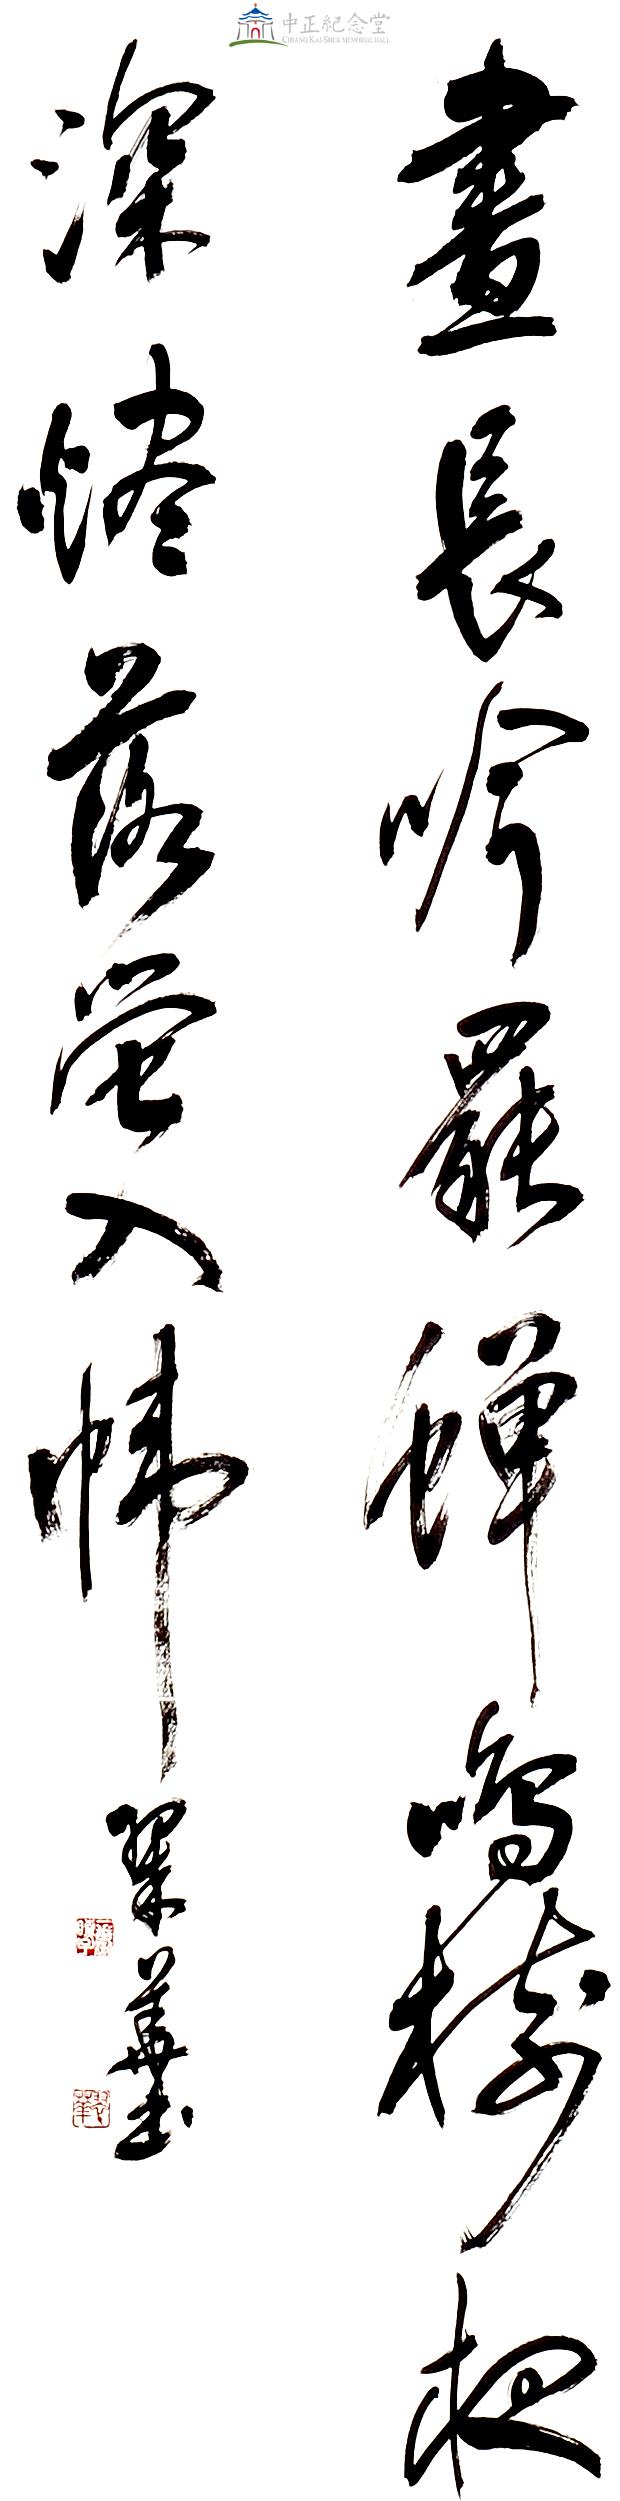 中正紀念堂
CHIANG KAI-SHEK MEMORIAL HALL
晝長吟罷蟬鳴樹夜
深燼落螢入幃